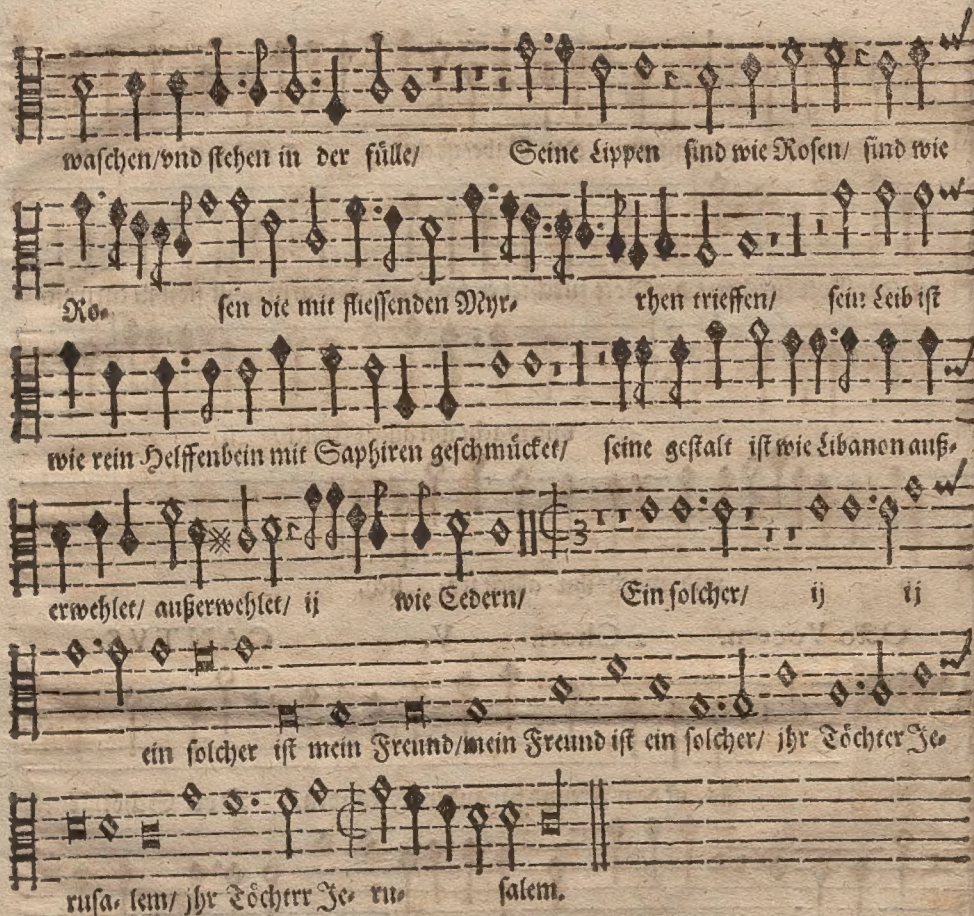 waschen/vnd stehen in der fülle/ Seine Lippen sind wie Rosen/ sind wie
Ro- sen die mit fliessenden Myr- rhen trieffen/ sein Leib ist
wie rein Helffenbein mit Saphiren geschmücket/ seine gestalt ist wie Libanon auß-
erwehlet/ außerwehlet/ ij wie Cedern/ Ein solcher/ ij ij
ein solcher ist mein Freund/mein Freund ist ein solcher/ jhr Töchter Je-
rusa- lem/ jhr Töchter Je- ru- salem.